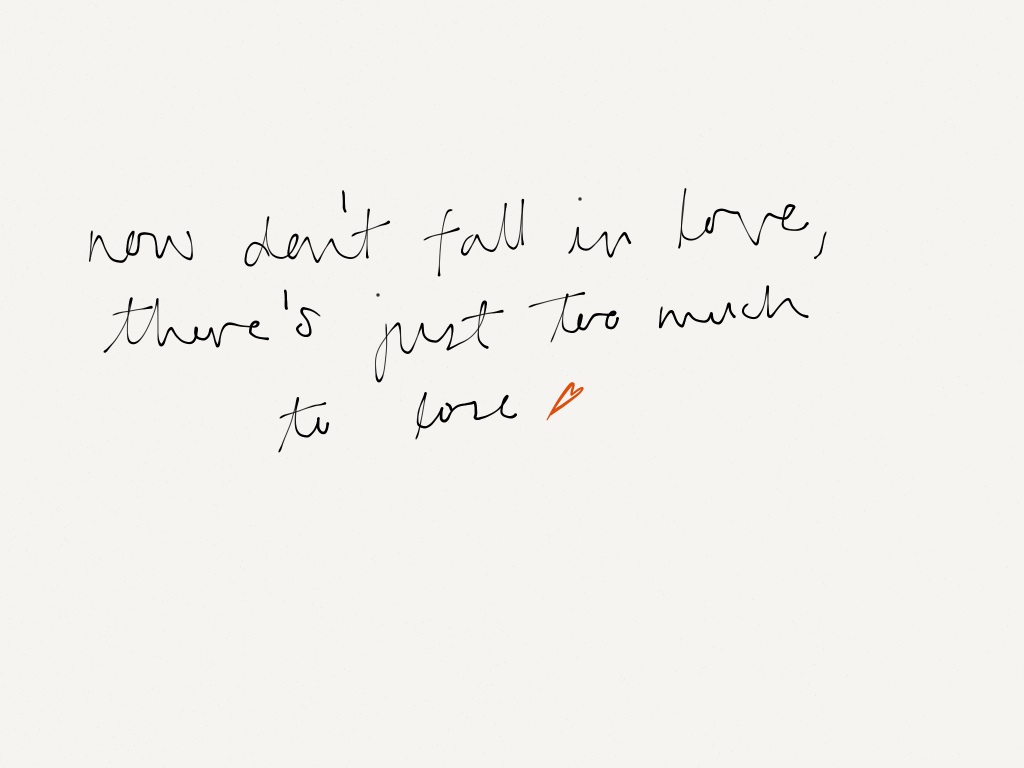 now don't fall in love,
there's just too much
to lose